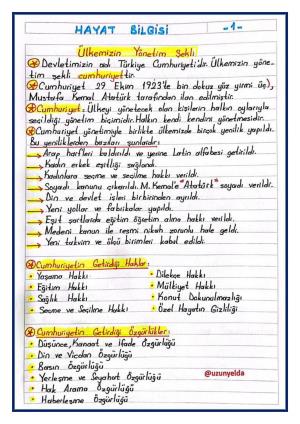 HAYAT BİLGİSİ -1-
Ülkemizin Yönetim Şekli
Devletimizin adı Türkiye Cumhuriyeti'dir. Ülkemizin yöne-
tim şekli cumhuriyettir.
Cumhuriyet 29 Ekim 1923'te (bin dokuz yüz yirmi üç),
Mustafa Kemal Atatürk tarafından ilan edilmiştir.
Cumhuriyet: Ülkeyi yönetecek olan kişilerin halkın oylarıyla
seçildiği yönetim biçimidir. Halkın kendi kendini yönetmesidir.
Cumhuriyet yönetimiyle birlikte ülkemizde birçok yenilik yapıldı.
Bu yeniliklerden bazıları şunlardır:
Arap harfleri kaldırıldı ve yerine Latin alfabesi getirildi.
Kadın erkek eşitliği sağlandı.
Kadınlara seçme ve seçilme hakkı verildi.
Soyadı kanunu çıkarıldı. M. Kemal'e "Atatürk" soyadı verildi.
Din ve devlet işleri birbirinden ayrıldı.
Yeni yollar ve fabrikalar yapıldı.
Eşit şartlarda eğitim öğretim alma hakkı verildi.
Medeni kanun ile resmi nikah zorunlu hale geldi.
Yeni takvim ve ölçü birimleri kabul edildi.
Cumhuriyetin Getirdiği Haklar:
Yaşama Hakkı
Eğitim Hakkı
Sağlık Hakkı
Seçme ve Seçilme Hakkı
Dilekçe Hakkı
Mülkiyet Hakkı
Konut Dokunulmazlığı
Özel Hayatın Gizliliği
Cumhuriyetin Getirdiği Özgürlükler:
Düşünce, Kanaat ve İfade Özgürlüğü
Din ve Vicdan Özgürlüğü
Basın Özgürlüğü
Yerleşme ve Seyahat Özgürlüğü
Hak Arama Özgürlüğü
Haberleşme Özgürlüğü
@uzunyelda